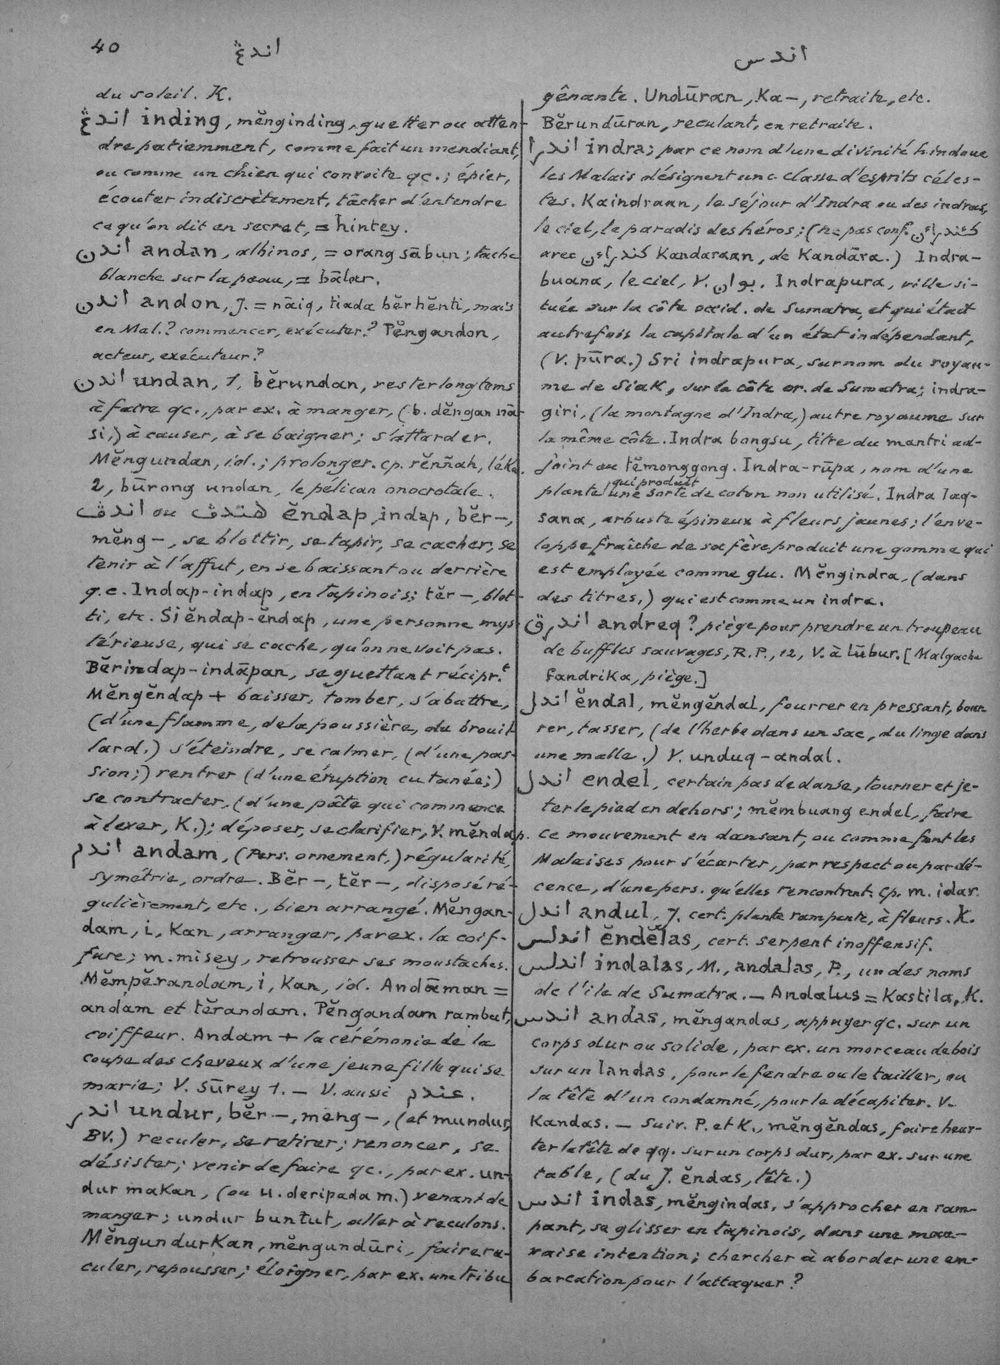 40
اندڠ
اندس
du soleil. K.
اندڠ inding, mĕnginding, guetter ou atten-
dre patiemment, comme fait un mendiant,
ou comme un chien qui convoite qc.; épier,
écouter indiscrètement, tâcher d'entendre
ce qu'on dit en secret, = hintey.
اندن andan, albinos, = orang sābun; tache
blanche sur la peau, = bālar.
اندن andon, J. = nāiq, tiada bĕrhĕnti, mais
en Mal.? commencer, exécuter? Pĕngandon,
acteur, exécuteur?
اندن undan, 1, bĕrundan, rester longtems
à faire qc., par ex. à manger, (b. dĕngan nā-
si,) à causer, à se baigner; s'attarder.
Mĕngundan, id.; prolonger. cp. rĕnñah, léka.
2, būrong undan, le pélican onocrotale.
اندڤ ou هندڤ ĕndap, indap, bĕr-,
mĕng-, se blottir, se tapir, se cacher, se
tenir à l'affut, en se baissant ou derrière
q.c. Indap-indap, en tapinois; tĕr-, blot-
ti, etc. Si ĕndap-ĕndap, une personne mys-
térieuse, qui se cache, qu'on ne voit pas.
Bĕrindap-indāpan, se guettant récipr.t
Mĕngĕndap + baisser, tomber, s'abattre,
(d'une flamme, de la poussière, du brouil-
lard,) s'éteindre, se calmer, (d'une pas-
sion;) rentrer (d'une éruption cutanée;)
se contracter, (d'une pâte qui commence
à lever, K.); déposer, se clarifier, V. mĕndap.
اندم andam, (Pers. ornement,) régularité,
symétrie, ordre. Bĕr-, tĕr-, disposé ré-
gulièrement, etc., bien arrangé. Mĕngan-
dam, i, kan, arranger, par ex. la coif-
fure; m. misey, retrousser ses moustaches.
Mĕmpĕrandam, i, kan, id. Andāman =
andam et tĕrandam. Pĕngandam rambut,
coiffeur. Andam + la cérémonie de la
coupe des cheveux d'une jeune fille qui se
marie; V. Sūrey 1. — V. aussi عندم.
اندر undur, bĕr-, mĕng-, (et mundur,
BV.) reculer, se retirer; renoncer, se
désister; venir de faire qc., par ex. un-
dur makan, (ou u. deripada m.) venant de
manger; undur buntut, aller à reculons.
Mĕngundurkan, mĕngundūri, faire re-
culer, repousser; éloigner, par ex. une tribu
gênante. Undūran, Ka-, retraite, etc.
Bĕrundūran, reculant, en retraite.
اندرا indra; par ce nom d'une divinité hindoue
les Malais désignent une classe d'esprits céles-
tes. Kaindraan, le séjour d'Indra ou des indras,
le ciel, le paradis des héros; (ne pas conf.
avec Kandaraan, de Kandāra.) Indra-
buana, le ciel, V. بوان. Indrapura, ville si-
tuée sur la côte occid. de Sumatra, et qui était
autrefois la capitale d'un état indépendant,
(V. pūra.) Sri indrapura, surnom du royau-
me de Siak, sur la côte or. de Sumatra; indra-
giri, (la montagne d'Indra,) autre royaume sur
la même côte. Indra bongsu, titre du mantri ad-
joint au tĕmonggong. Indra-rūpa, nom d'une
plante qui produit une sorte de coton non utilisé. Indra laq-
sana, arbuste épineux à fleurs jaunes; l'enve-
loppe fraîche de sa fève produit une gomme qui
est employée comme glu. Mĕngindra, (dans
des titres,) qui est comme un indra.
اندرق andreq? piège pour prendre un troupeau
de buffles sauvages, R.P., 12, V. à lūbur. [Malgache
fandrika, piège.]
اندل ĕndal, mĕngĕndal, fourrer en pressant, bour-
rer, tasser, (de l'herbe dans un sac, du linge dans
une malle.) V. unduq-andal.
اندل endel, certain pas de danse, tourner et je-
ter le pied en dehors; mĕmbuang endel, faire
ce mouvement en dansant, ou comme font les
Malaises pour s'écarter, par respect ou par dé-
cence, d'une pers. qu'elles rencontrent. cp. m. idar.
اندل andul, J. cert. plante rampante, à fleurs. K.
اندلس ĕndĕlas, cert. serpent inoffensif.
اندلس indalas, M., andalas, P., un des noms
de l'île de Sumatra. — Andalus = Kastila, K.
اندس andas, mĕngandas, appuyer qc. sur un
corps dur ou solide, par ex. un morceau de bois
sur un landas, pour le fendre ou le tailler, ou
la tête d'un condamné, pour le décapiter. V.
Kandas. — Suiv. P. et K., mĕngĕndas, faire heur-
ter la tête de qq. sur un corps dur, par ex. sur une
table, (du J. ĕndas, tête.)
اندس indas, mĕngindas, s'approcher en ram-
pant, se glisser en tapinois, dans une mau-
vaise intention; chercher à aborder une em-
barcation pour l'attaquer?